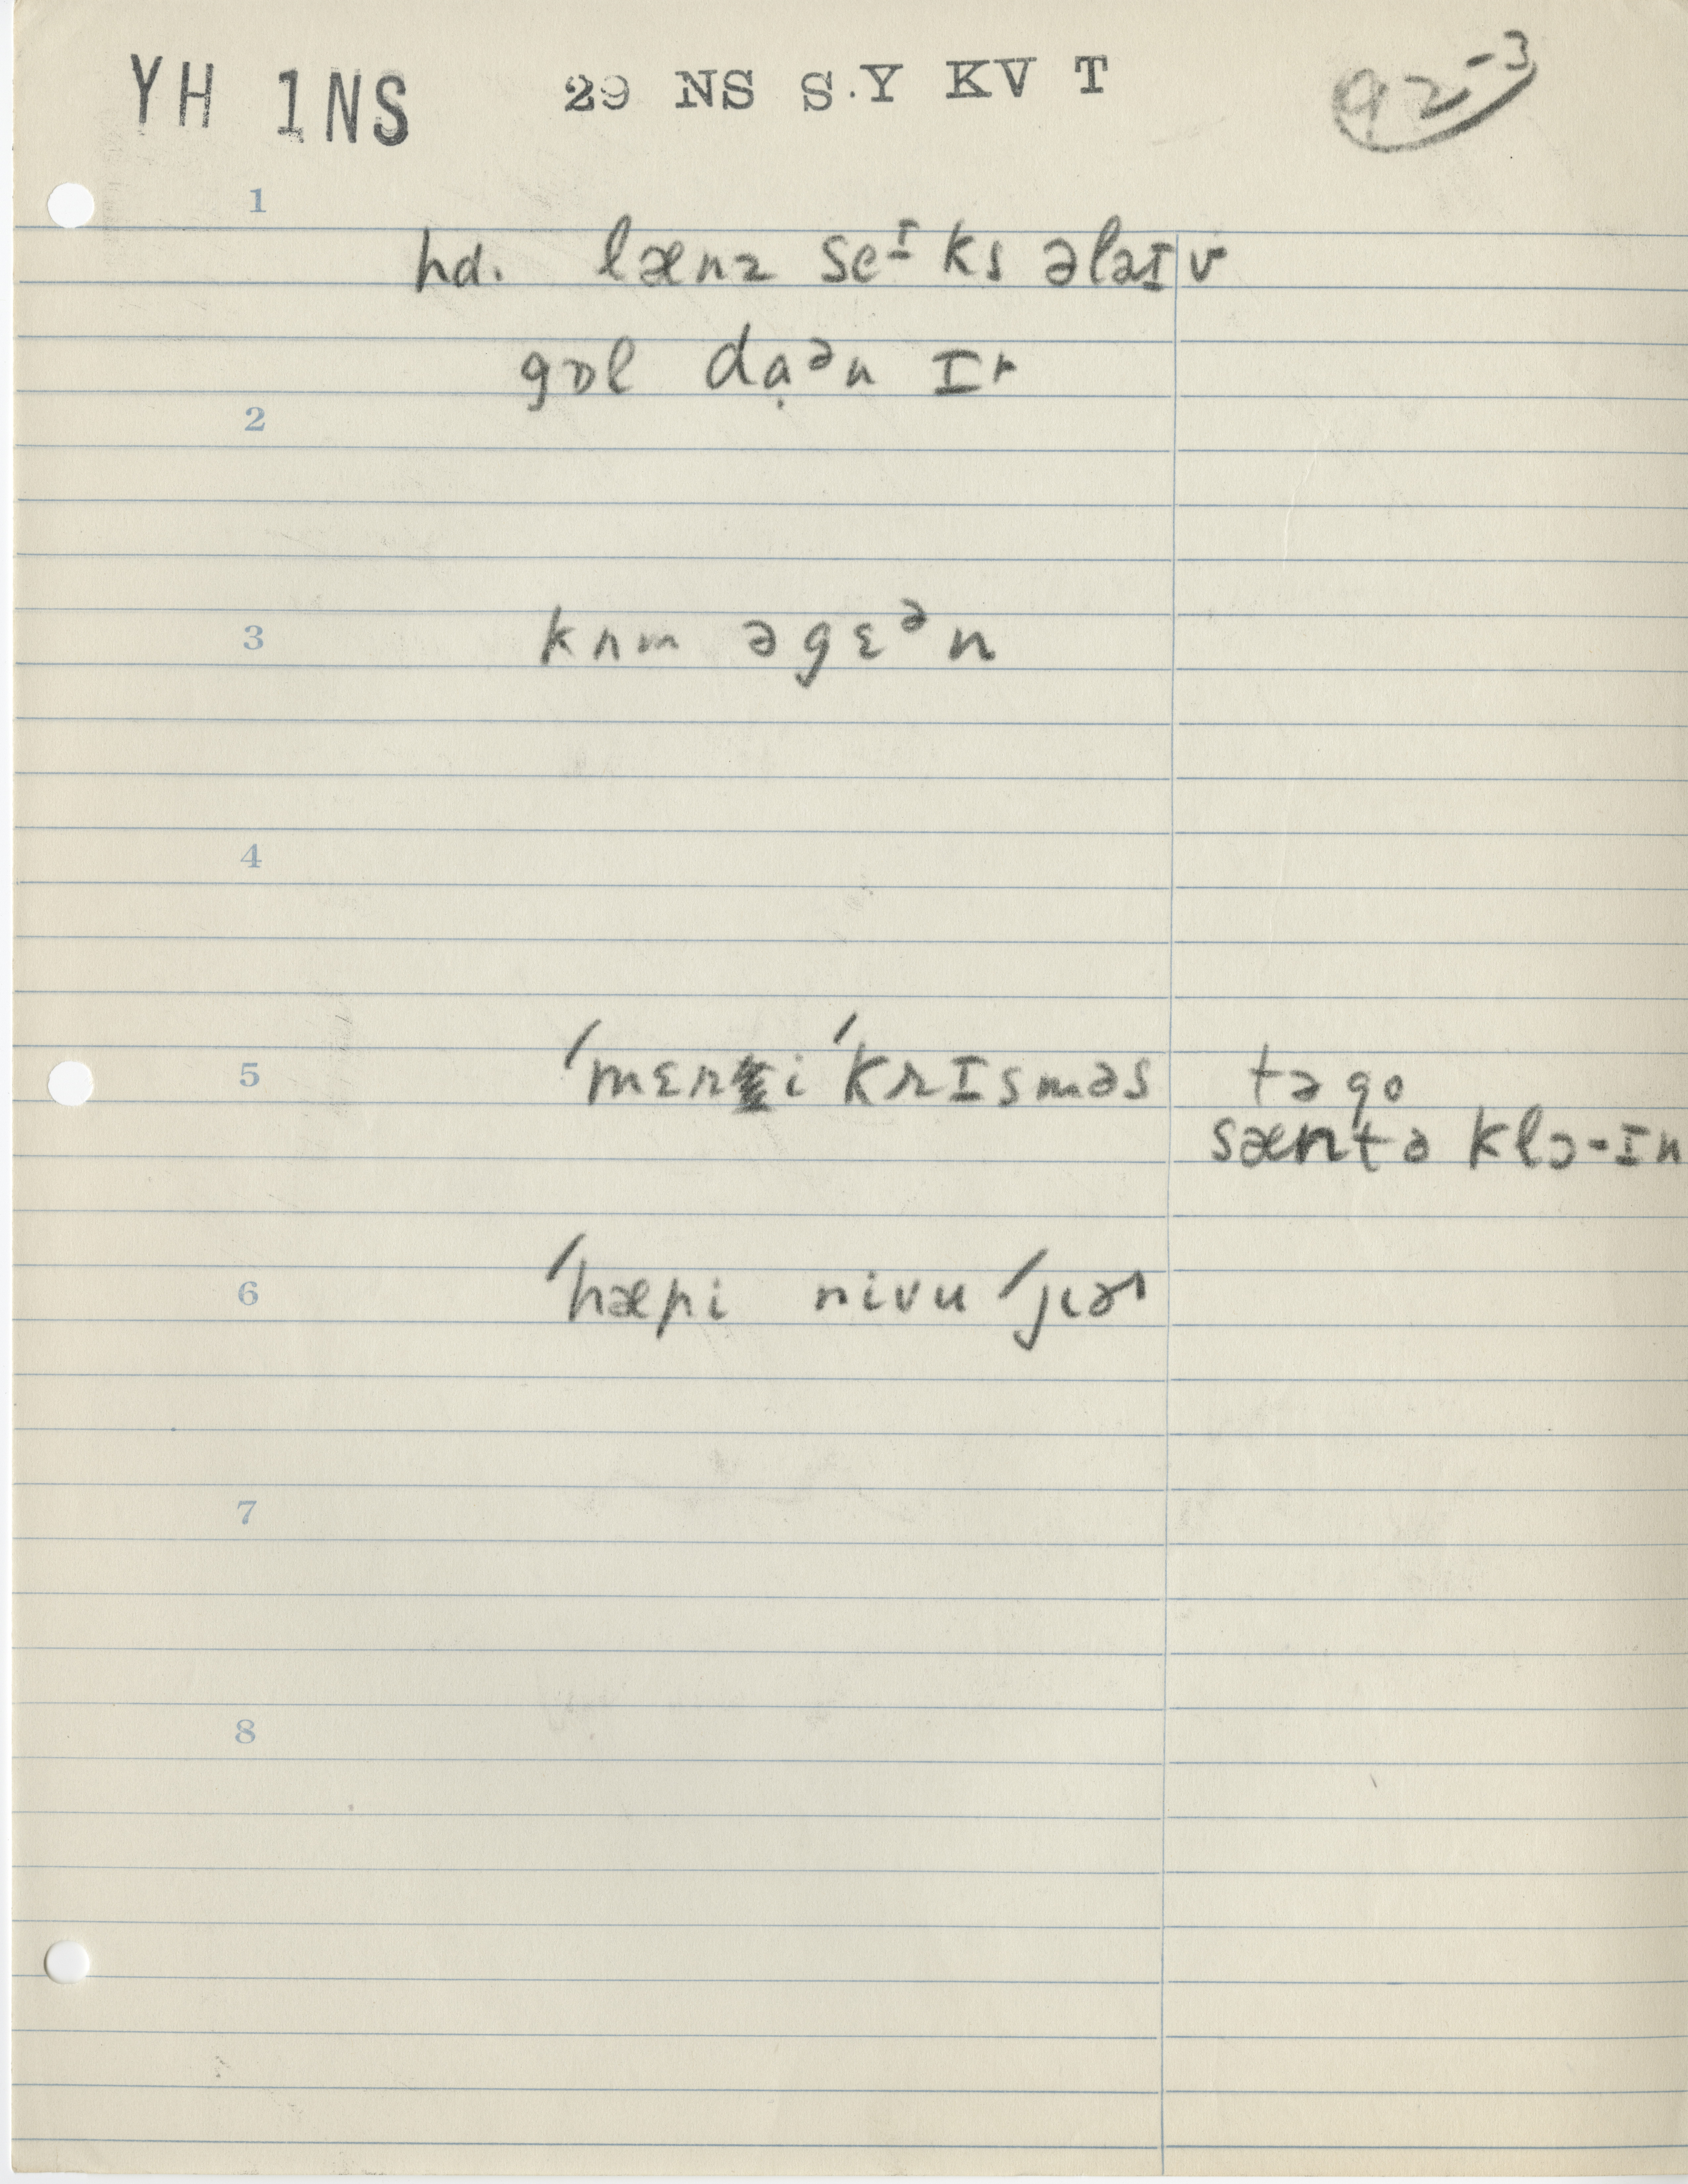 YH 1NS 29 NS S.Y KV T 92-3
1
hd. lænz seᴵks əlaɪv
gɒl dạᵊn ɪr
2
3 kʌm əgɛᵊn
4
5 ˈmɛri ˈkrɪsməs tə go
sæntə klɔ-ɪn
6 ˈhæpi nivu ˈjɪɚ
7
8